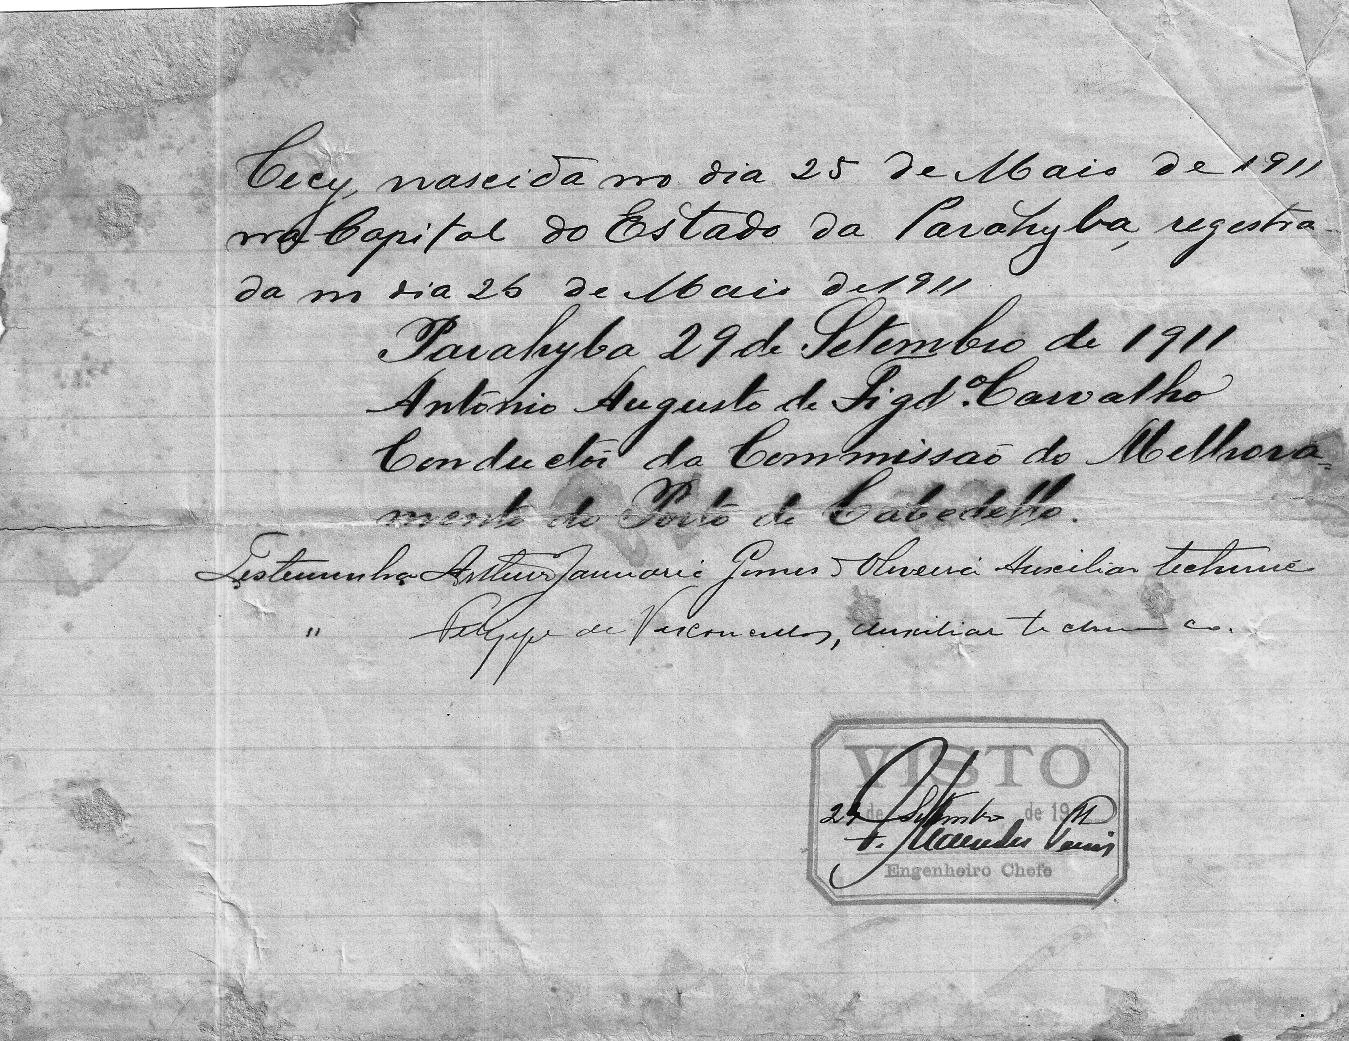 Cecy, nascida no dia 25 de Maio de 1911
na Capital do Estado da Parahyba, registra-
da no dia 26 de Maio de 1911
Parahyba 29 de Setembro de 1911
Antonio Augusto de Figdº. Carvalho
Conductor da Commissaõ do Melhora-
mento do Porto de Cabedello.
Testemunha Arthur Januario Gomes d'Oliveira Auxiliar technico
" Felyppe de Vasconcellos, auxiliar technico.
VISTO
29 de Setembro de 1911
Engenheiro Chefe